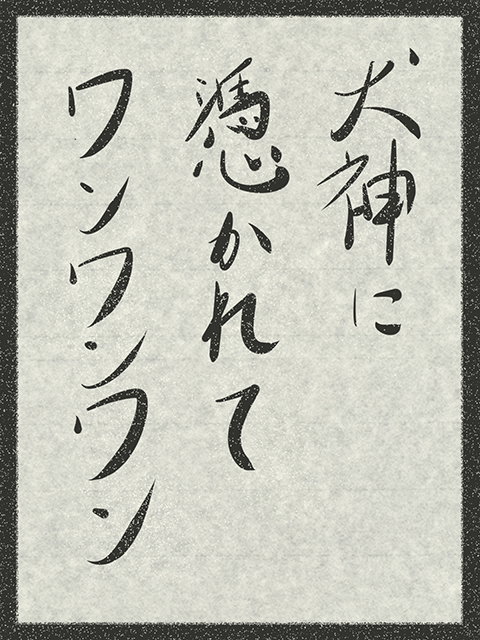 犬神に
憑かれて
ワンワンワン